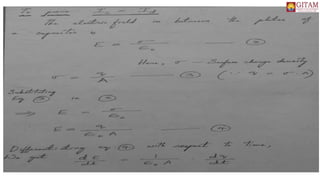 GITAM
To prove I_c = I_d
The electric field in between the plates of
a capacitor is
E = σ/ε₀
Here, σ – Surface charge density
σ = q/A (∵ q = σ·A)
Substituting
Eq ③ in ②
⟹ E = σ/ε₀
E = q/(ε₀ A) ④
Differentiating eq ④ with respect to time,
We get dE/dt = 1/(ε₀ A) dq/dt